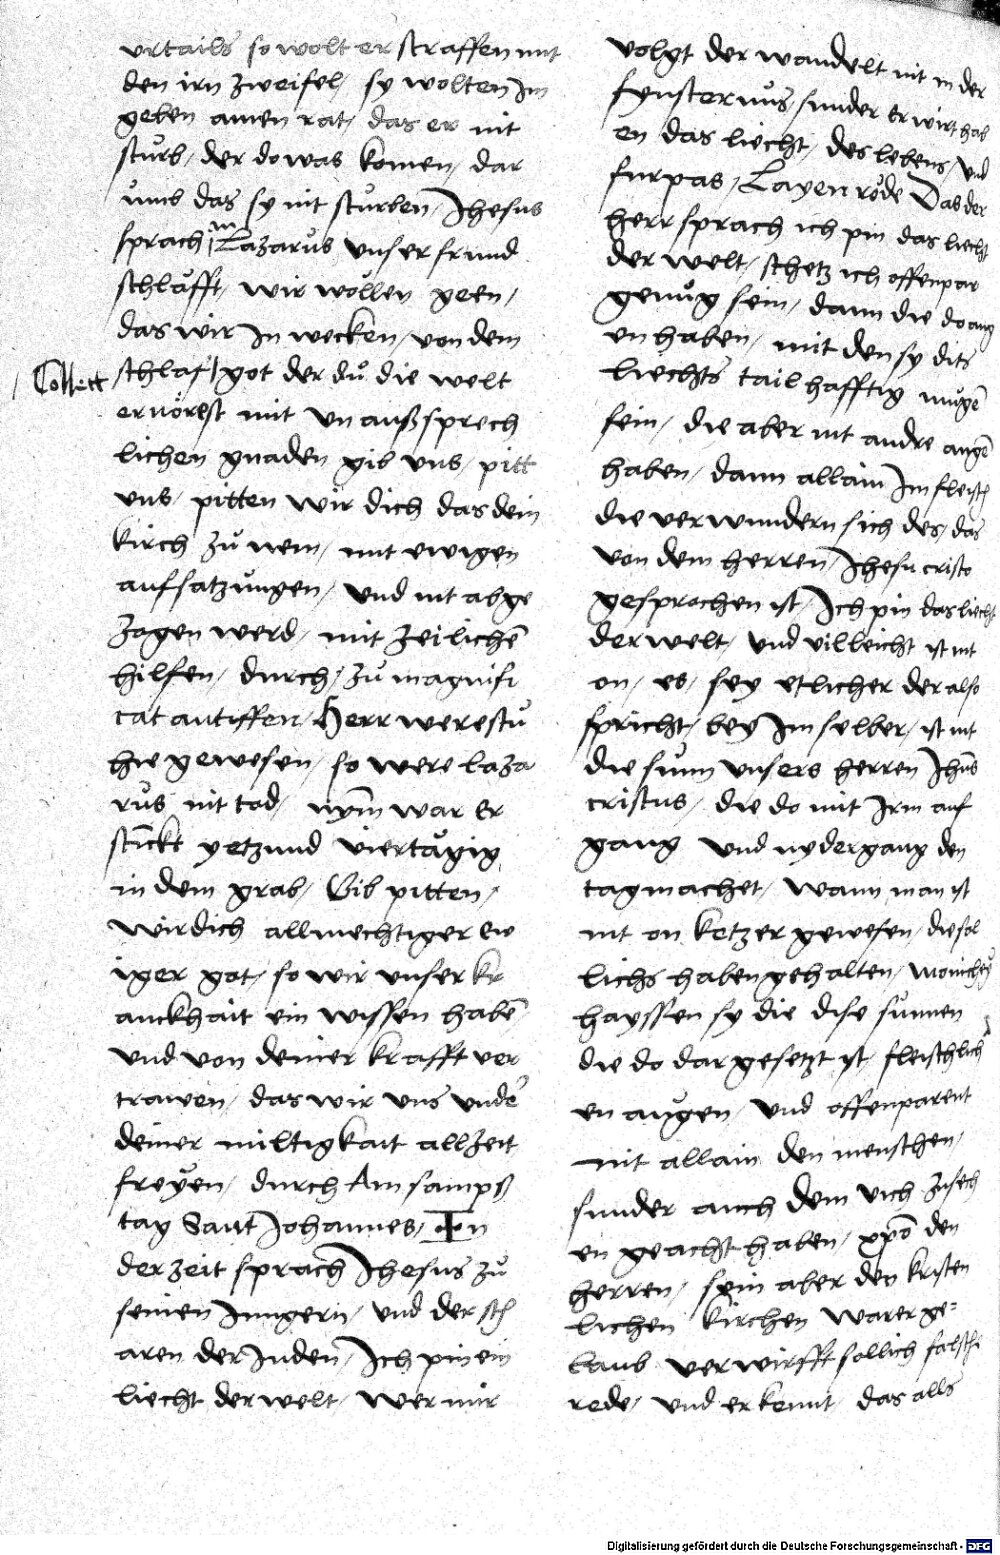 urtails so wolt er straffen mit
den irn zweifel / sy wolten Im
geben ainen rat / das er nit
sturb / der do was komen / dar
umb das sy nit sturben / Jhesus
sprach Lazarus unser frund
schläfft / wir wöllen geen /
das wir In wecken / von dem
Collect
schlaf / got der du die welt
ernörest mit unaußsprech
lichen gnaden gib uns / pitt
uns / pitten wir dich das dein
kirch zu nem / mit ewigen
aufsatzungen / und nit abge
zogen werd / mit zeilichē
hilfen / durch / zu magnifi
cat antiffen / Herr werestu
hie gewesen / so were laza
rus nit tod / nym̄ war er
stinckt yetzund viertägig
in dem grab / Gib pitten /
wir dich allmechtiger ew
iger got / so wir unser kr
anckhait ein wissen habē
und von deiner krafft ver
trawen / das wir uns undē
deiner miltigkait allzeit
freyen / durch Am sampß
tag Sant Johannes / In
der zeit sprach Jhesus zu
seinen Jungern / und der sch
aren der Juden / Ich pin ein
liecht der welt / wer mir
volgt der wandelt nit in der
fynsternus / sunder er wirt hab
en das liecht / des lebens / und
furpas / Layen rede Das der
herr sprach ich pin das liecht
der welt / schetz ich offenpar
genug sein / dann die do aug
en haben / mit den sy dits
liechts tailhafftig mugē
sein / die aber nit andre augē
haben / dann allain Im fleisch
die verwundern sich des / das
von dem herren Jhesu cristo
gesprochen ist / Ich pin das liecht
der welt / und villeicht ist nit
on / es / sey etlicher der also
spricht / bey Im selber / ist nit
die sunn unsers herren Jhūs
cristus / die do mit Irm auf
gang und nydergang den
tag machet / wann man ist
nit on ketzer gewesen / die sol
lichs haben gehalten /
hayssen sy die dise sunnen
die do dargesetzt ist / fleischlich
en augen / und offenparent
nit allain den menschen /
sunder auch dem vich zusech
en geacht haben / xpō den
herren / sein aber der kristen
lichen kirchen warer ge=
laub verwirfft sollich falsch
rede / und erkennt / das alls
Digitalisierung gefördert durch die Deutsche Forschungsgemeinschaft - DFG